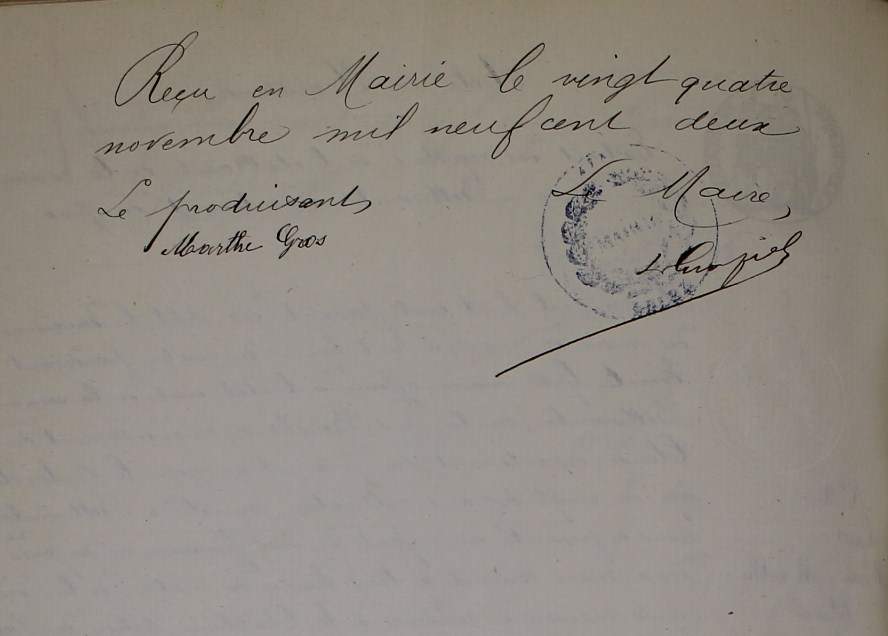 Reçu en Mairie le vingt quatre
novembre mil neuf cent deux
Le produisant
Le Maire,
Marthe Gros